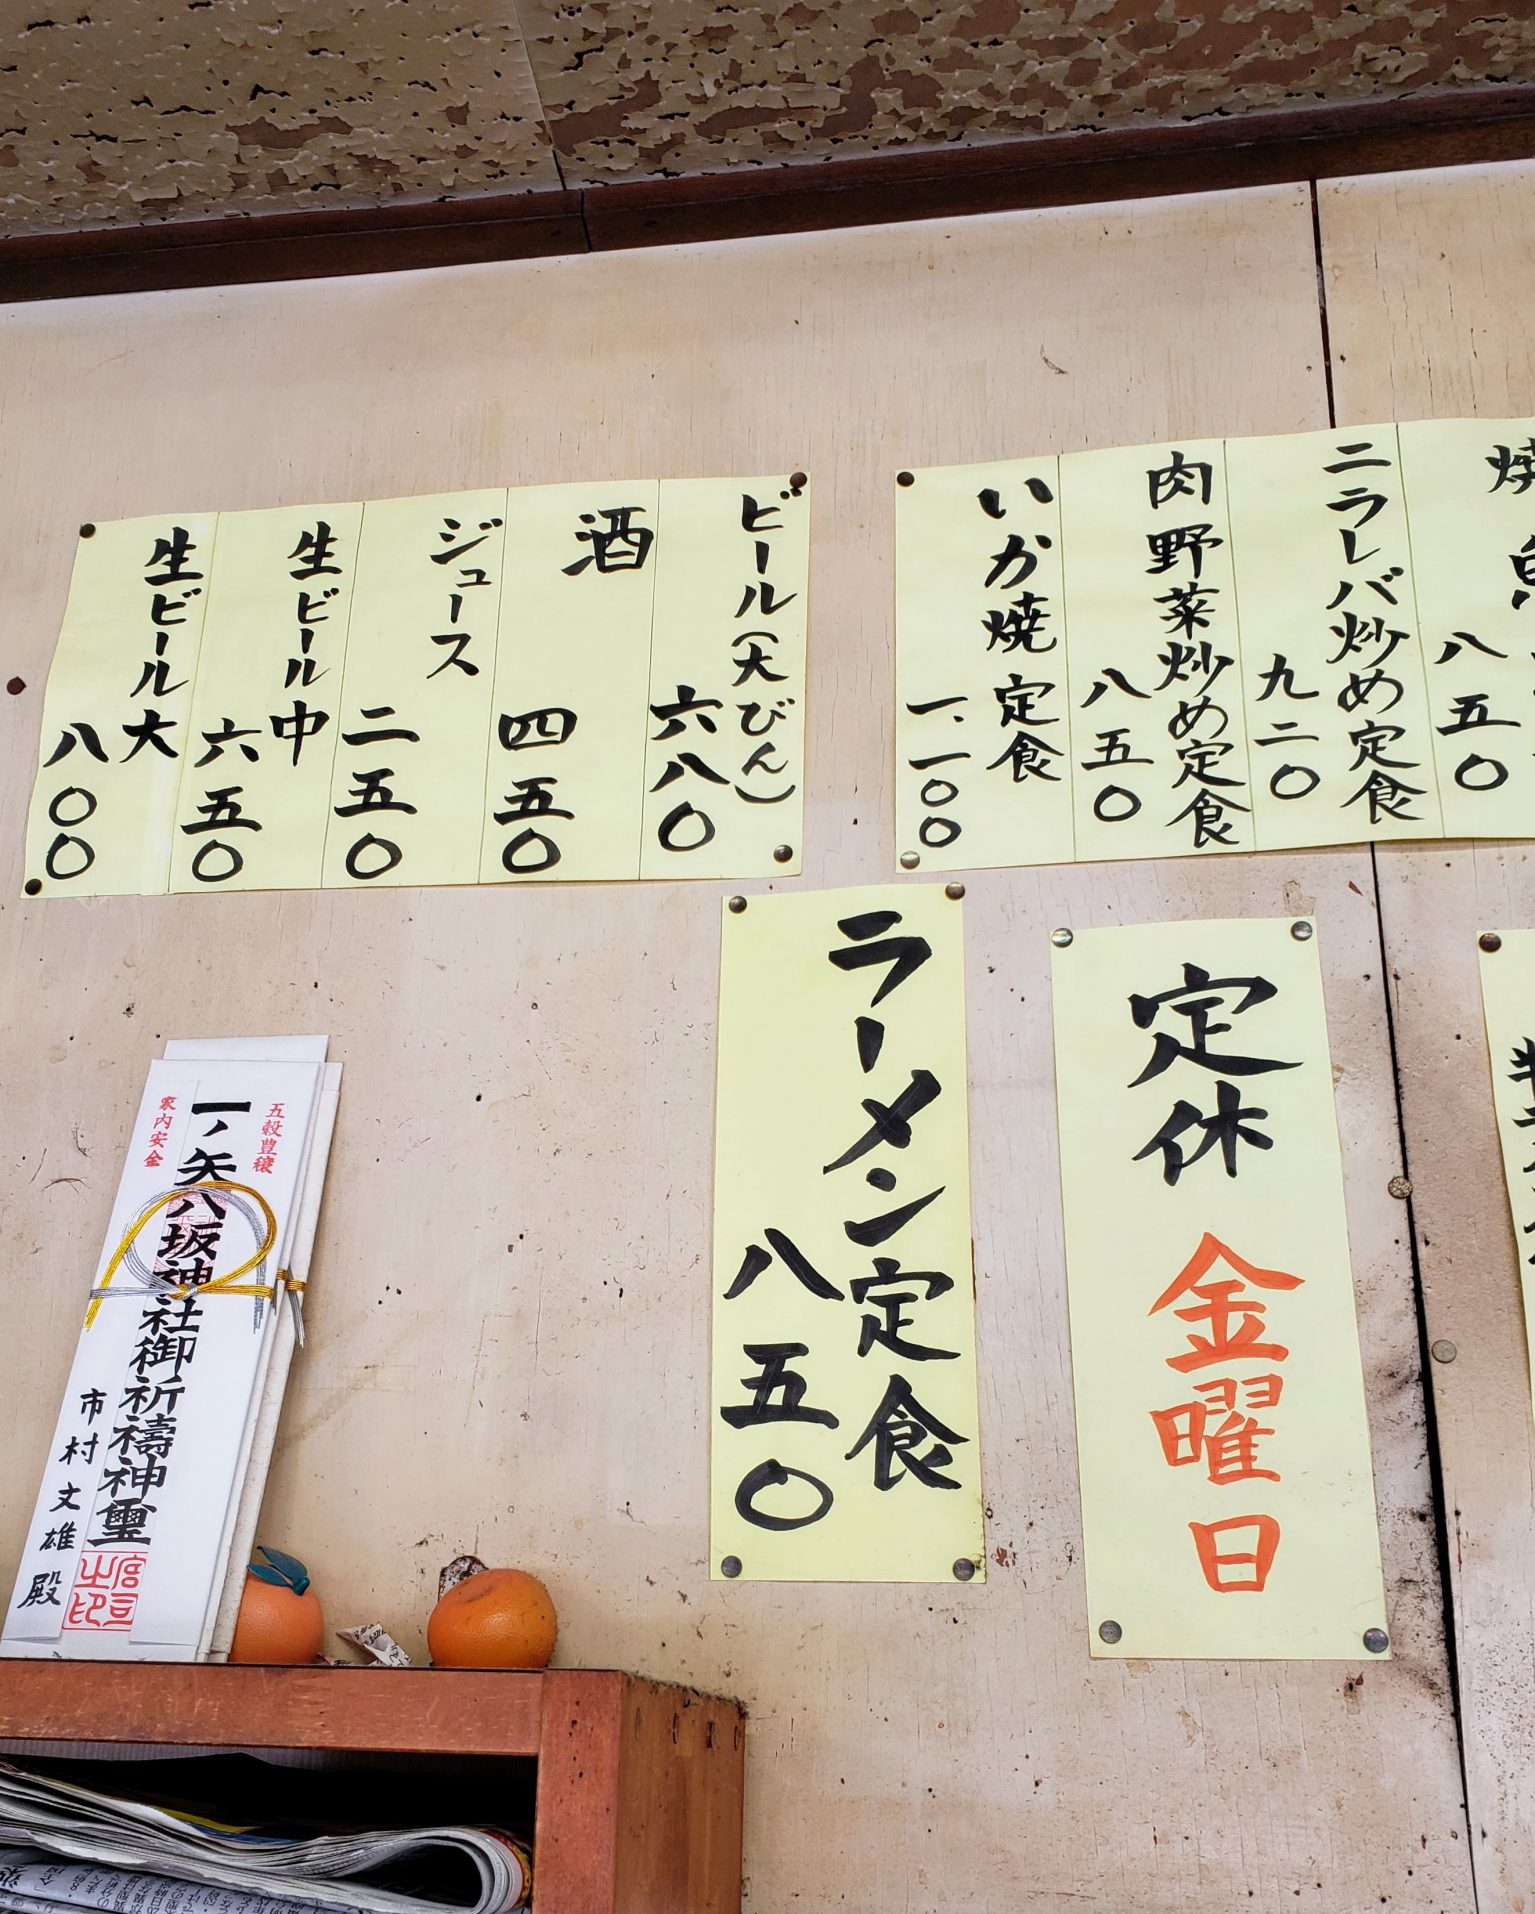 ビール(大びん)
六八〇
酒
四五〇
ジュース
二五〇
生ビール中
六五〇
生ビール大
八〇〇
八五〇
ニラレバ炒め定食
九二〇
肉野菜炒め定食
八五〇
いか焼定食
一、一〇〇
ラーメン定食
八五〇
定休
金曜日
五穀豊穣
一ノ矢八坂神社御祈禱神璽
家内安全
市村文雄殿